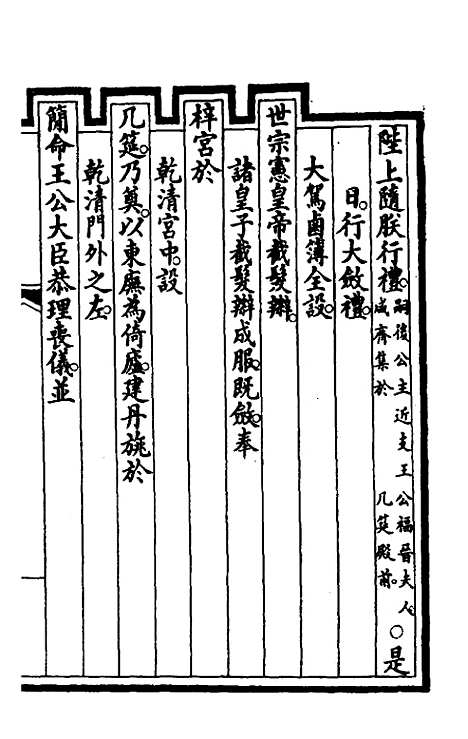 陛上隨朕行禮。嗣後公主近支王公福晉夫人咸齊集於几筵殿前。○是
日。行大斂禮。
大駕鹵簿全設。
世宗憲皇帝截髮辮。
諸皇子截髮辮成服。旣斂。奉
梓宮於
乾清宮中。設
几筵。乃奠。以東廡為倚廬。建丹旐於
乾清門外之左。
簡命王公大臣恭理喪儀。並